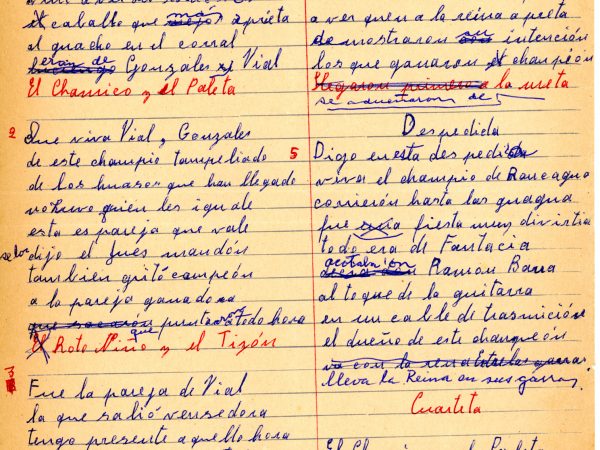 el caballo que mas aprieta
al guacho en el corral
Gonzáles y Vial
El Chamico y el Paleta
2
Que viva Vial, y Gonzales
de este champio tampeliado
de los huasos que han llegado
no huvo quien les iguale
esta es pareja que vale
se los dijo el jues mandón
también gritó campeón
a la pareja ganadora
puntera todo hora
El Roto Niño y el Tizón
3
Fue la pareja de Vial
la que salió vensedora
tengo presente aquella hora
a ver quen a la reina apreta
demostraron su intención
los que ganaron el champeón
llegaron primero a la meta
se adueñaron de
Despedida
5
Digo en esta despedida
viva el champio de Rancagua
comieron hasta las guagua
fue una fiesta muy divirtia
todo era de Fantacia
Ramon Barra
al toque de la guitarra
en un cable de trasmición
el dueño de este champeón
lleva la Reina en sus garras
Cuarteta